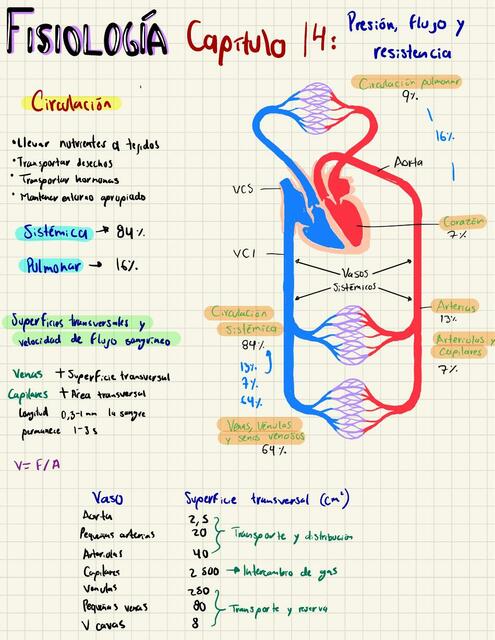 FISIOLOGÍA Capítulo 14: Presión, flujo y
resistencia
Circulación
• Llevar nutrientes a tejidos
• Transportar desechos
• Transportar hormonas
• Mantener entorno apropiado
Sistémica → 84%
Pulmonar → 16%
Circulación pulmonar
9%
16%
Aorta
VCS
Corazón
7%
VCI
Vasos
sistémicos
Circulación
sistémica
84%
13%
7%
64%
Arterias
13%
Arteriolas y
Capilares
7%
Venas, Vénulas
y senos venosos
64%
Superficies transversales y
velocidad de flujo sanguíneo
Venas + Superficie transversal
Capilares + Área transversal
Longitud 0,3-1 mm la sangre
permanece 1-3 s
V= F/A
Vaso Superficie transversal (cm²)
Aorta 2,5
Pequeñas arterias 20 Transporte y distribución
Arteriolas 40
Capilares 2 500 → Intercambio de gas
Venulas 250
Pequeñas venas 80 Transporte y reserva
V cavas 8